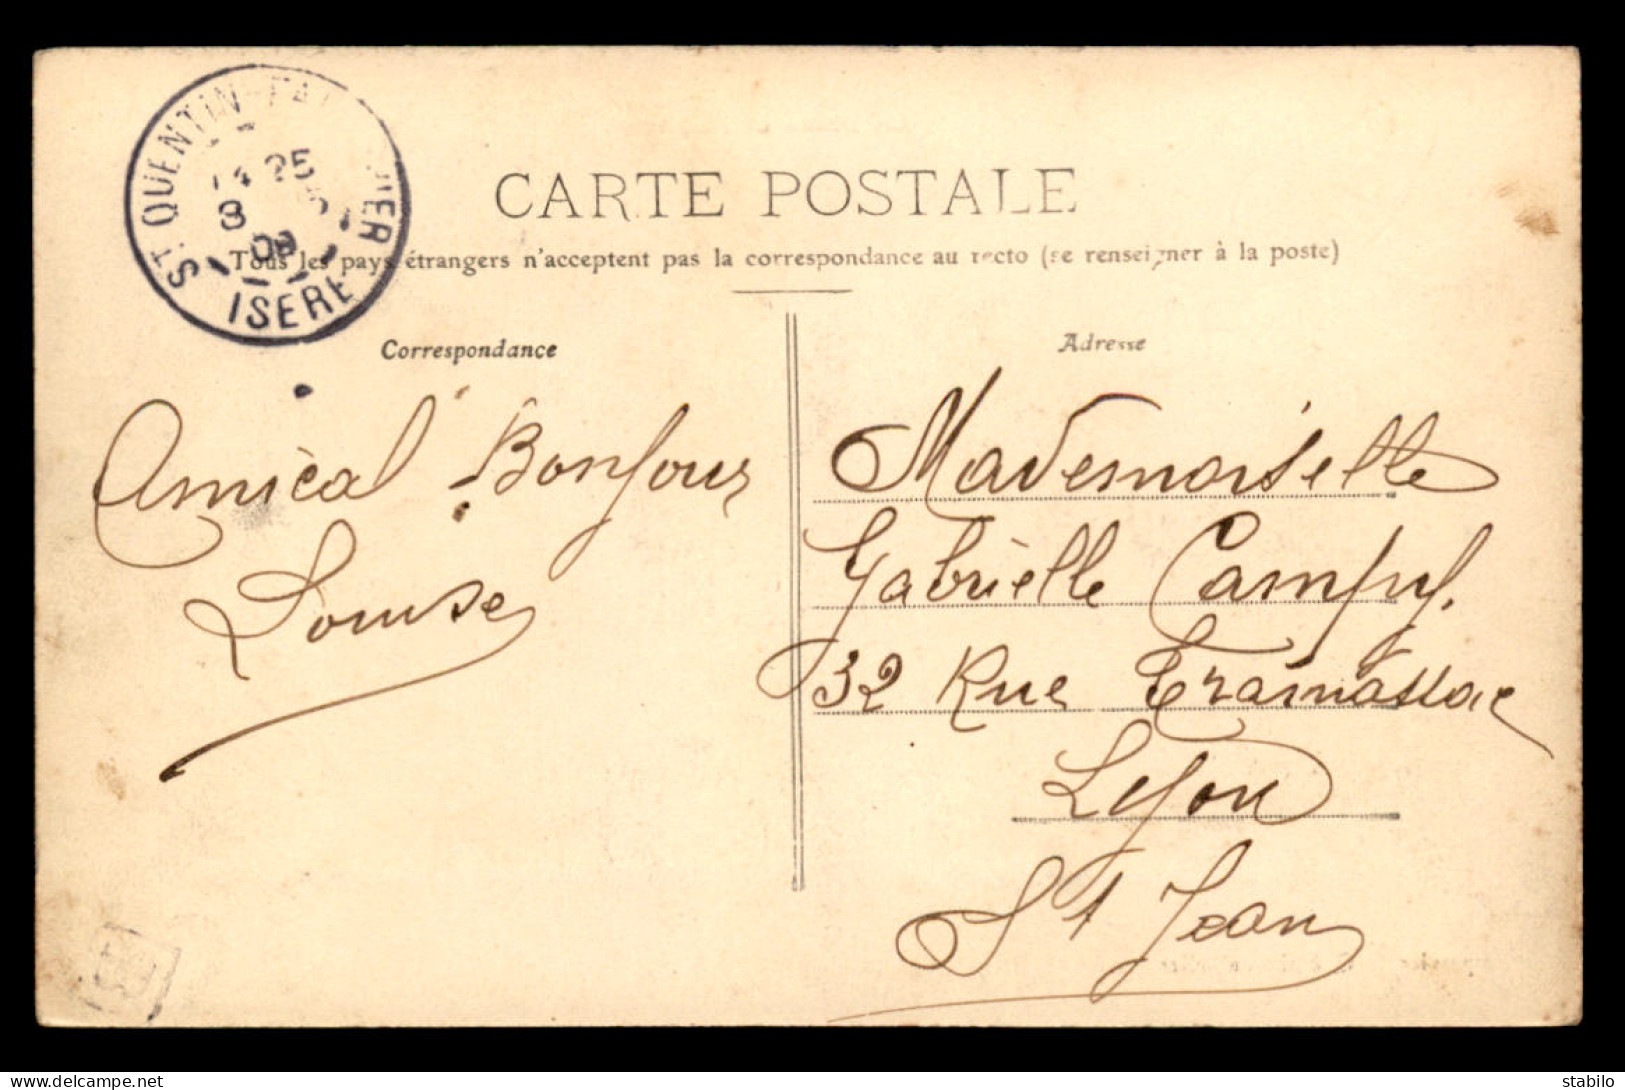 ST QUENTIN-FA PIER
14 25
8
09
ISERE
CARTE POSTALE
Tous les pays étrangers n'acceptent pas la correspondance au recto (se renseigner à la poste)
Correspondance
Amical Bonjour
Louise
Adresse
Mademoiselle
Gabrielle
32 Rue Tramassac
Lyon
St Jean
delcampe.net
stabilo